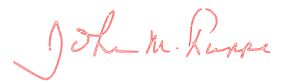 John M. Ruppe